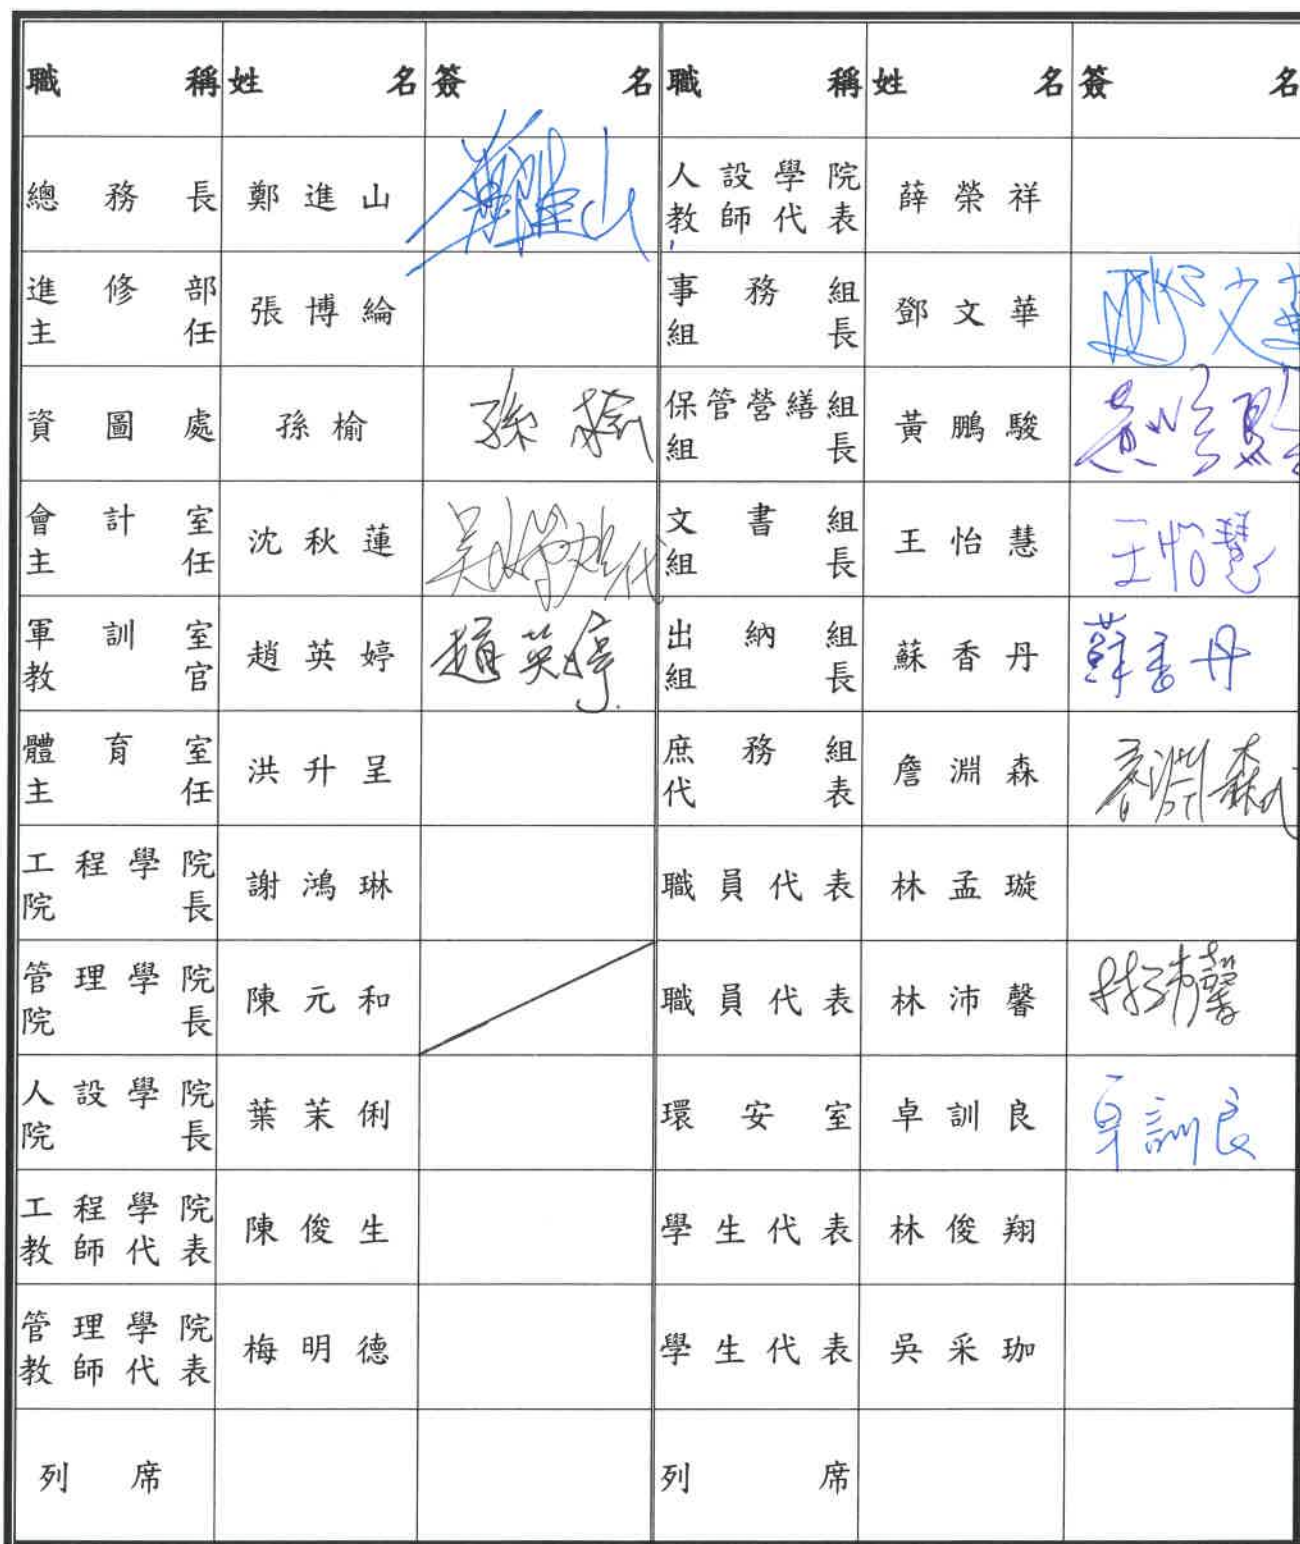 職稱 姓名 簽名 職稱 姓名 簽名
總務長 鄭進山 鄭進山 人設學院教師代表 薛榮祥
進修部主任 張博綸 事務組組長 鄧文華 鄧文華
資圖處 孫榆 孫榆 保管營繕組組長 黃鵬駿 黃鵬駿
會計室主任 沈秋蓮 代 文書組組長 王怡慧 王怡慧
軍訓室教官 趙英婷 趙英婷 出納組組長 蘇香丹 蘇香丹
體育室主任 洪升呈 庶務組代表 詹淵森 詹淵森
工程學院院長 謝鴻琳 職員代表 林孟璇
管理學院院長 陳元和 職員代表 林沛馨 林沛馨
人設學院院長 葉茉俐 環安室 卓訓良 卓訓良
工程學院教師代表 陳俊生 學生代表 林俊翔
管理學院教師代表 梅明德 學生代表 吳采珈
列席 列席